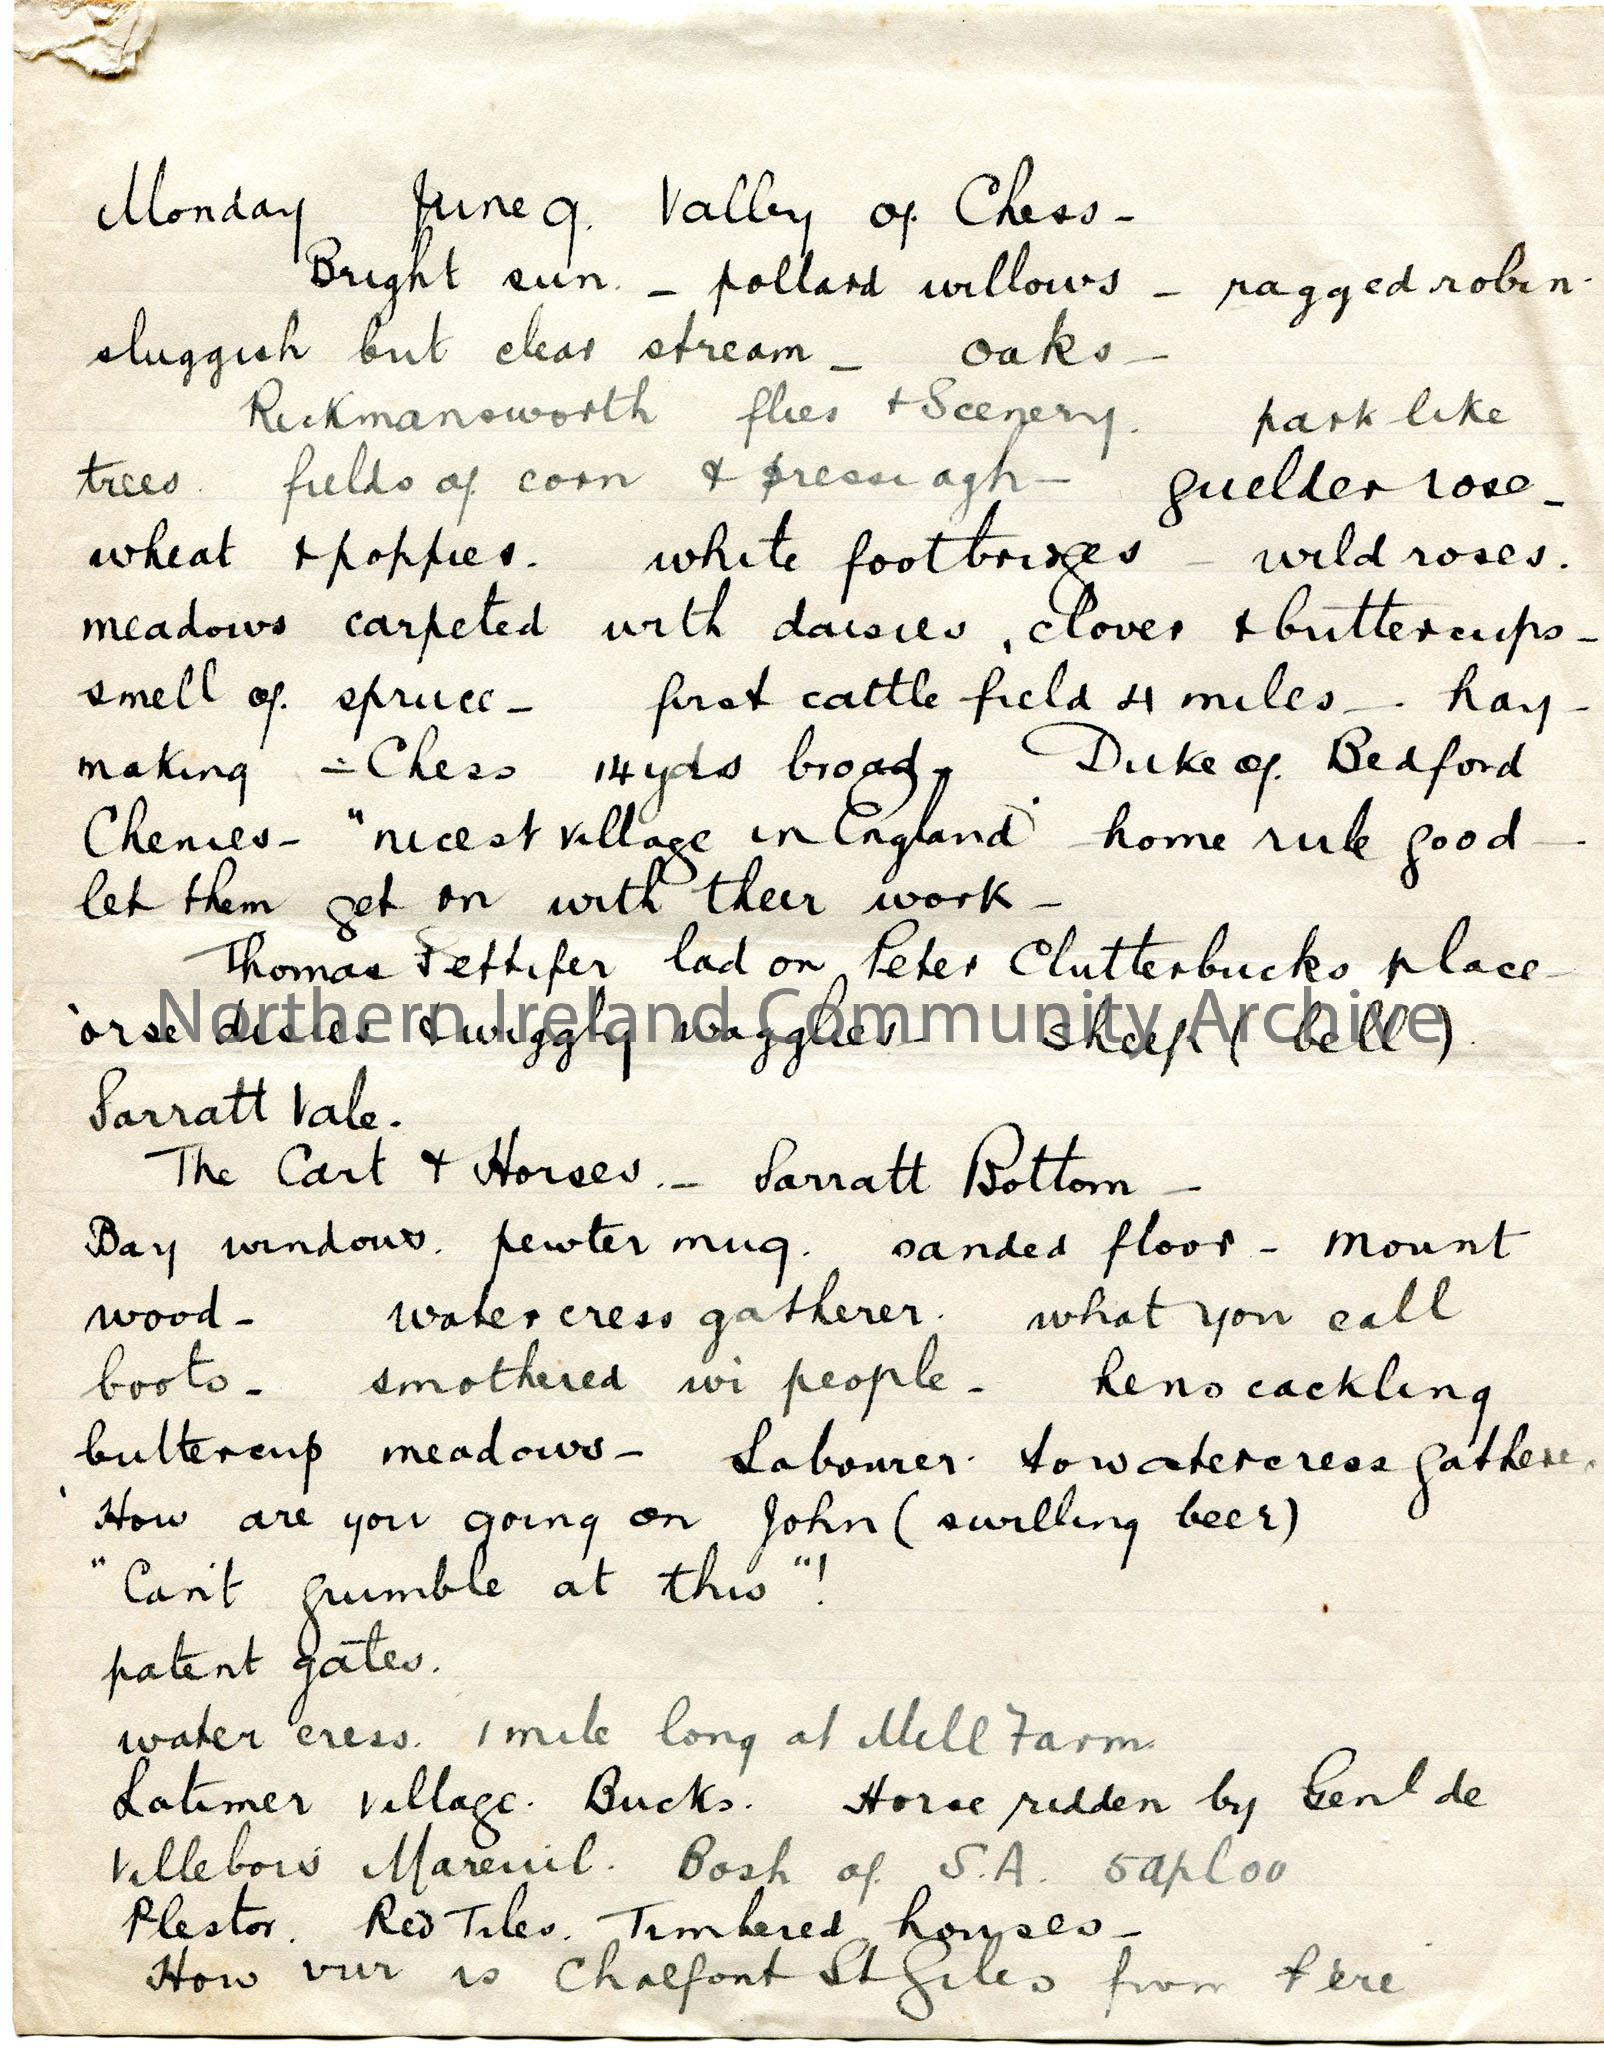 Monday June 9. Valley of Chess -
Bright sun. - pollard willows - ragged robin -
sluggish but clear stream - oaks -
Rickmansworth flies + Scenery. park like
trees. fields of corn & pressiagh - guelder rose -
wheat + poppies. white footbridges - wild roses.
meadows carpeted with daisies, clover + buttercups -
smell of spruce - first cattle field 4 miles - hay -
making - Chess 14 yds broad. Duke of Bedford
Chenies - "nicest village in England" home rule good -
let them get on with their work -
Thomas Pettifer lad on Peter Clutterbucks place -
'orse disies & wiggly wagglies - sheep (bell).
Northern Ireland Community Archive
Sarratt Vale.
The Cart & Horses. - Sarratt Bottom -
Bay windows. pewter mug. sanded floor - Mount
wood - watercress gatherer. what you call
boots - smothered wi people - hens cackling
buttercup meadows - Labourer to watercress gatherer.
'How are you going on John (swilling beer)
"Can't grumble at this"!
patent gates.
water cress. 1 mile long at Mill Farm
Latimer village. Bucks. Horse ridden by Genl de
Villebois Mareuil. Bosh of S.A. 5 apl 00
Plestor. Red Tiles. Timbered houses -
How vur is Chalfont St Giles from t'ere